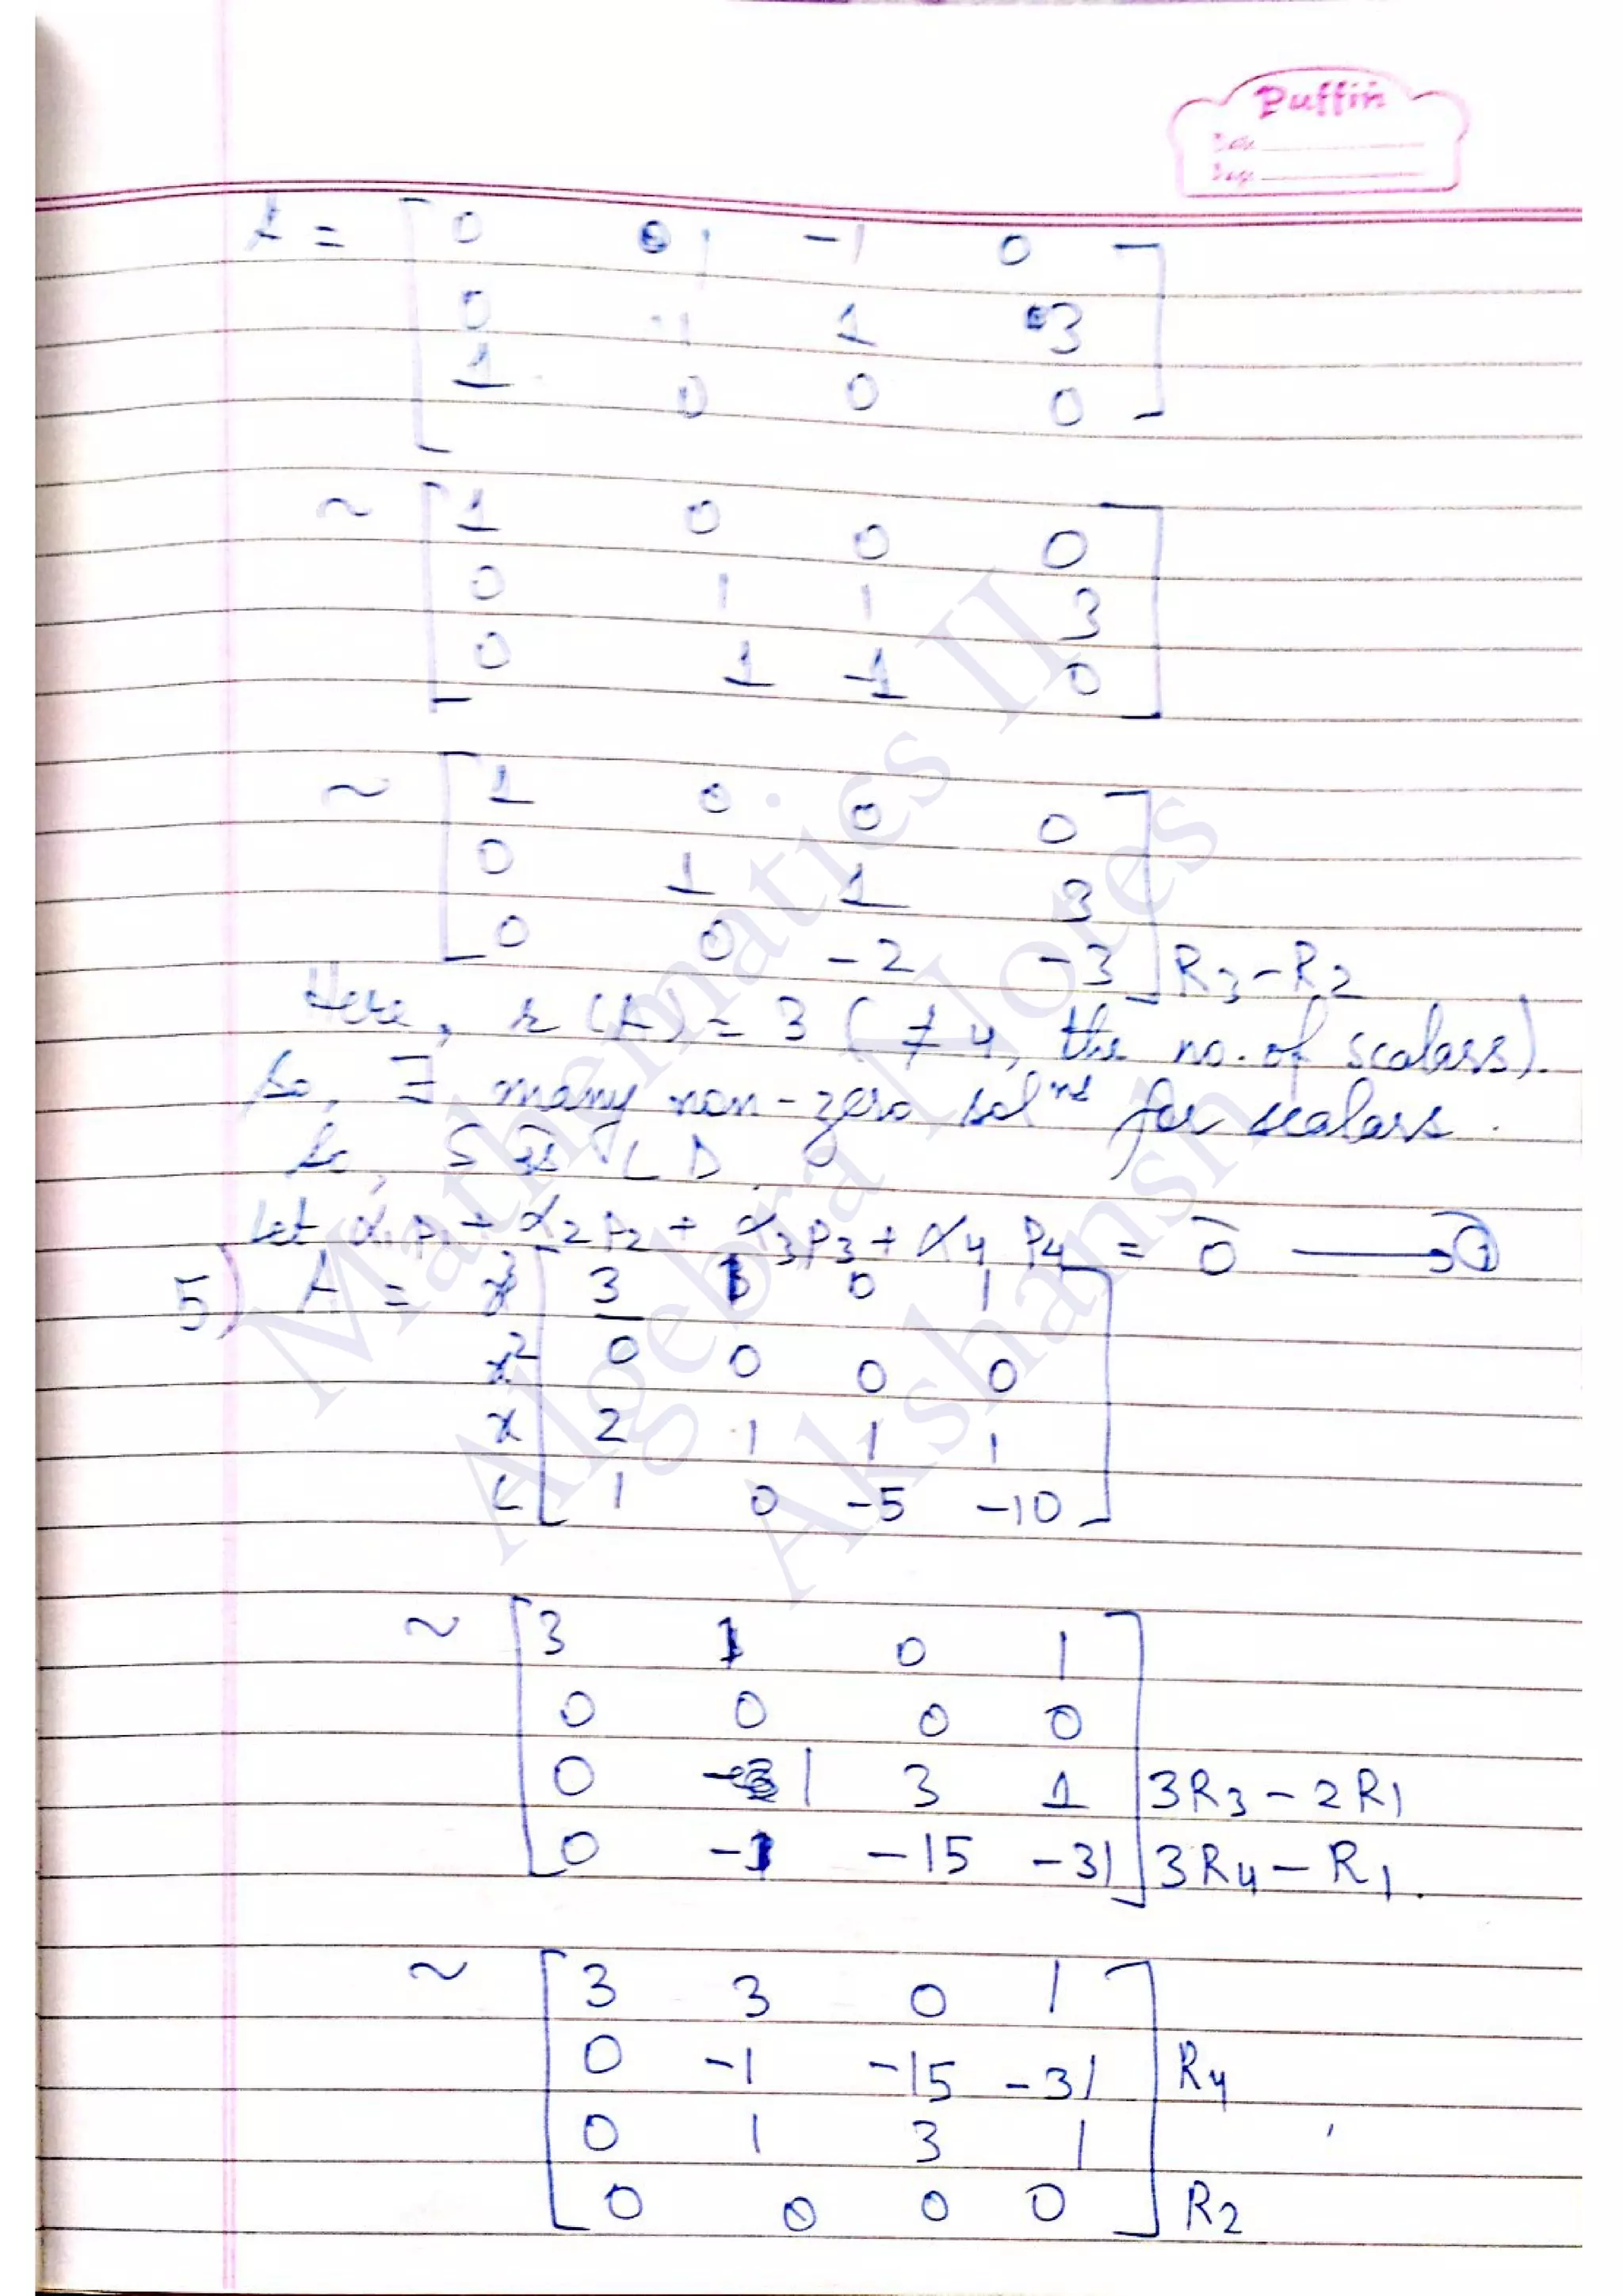 Puffin
Date
Page
A = [ 0 0 1 -1 0 ]
[ 0 1 1 3 ]
[ 1 0 0 0 ]
~ [ 1 0 0 0 ]
[ 0 1 1 3 ]
[ 0 1 -1 0 ]
~ [ 1 0 0 0 ]
[ 0 1 1 3 ]
[ 0 0 -2 -3 ] R3-R2
Here, r(A) = 3 (≠ 4, the no. of scalars).
So, ∃ many non-zero solns for scalars.
So, S is LD.
Let α1p1 + α2p2 + α3p3 + α4p4 = 0̄ → ①
5) A = x³ [ 3 1 0 1 ]
x² [ 0 0 0 0 ]
x [ 2 1 1 1 ]
c [ 1 0 -5 -10 ]
~ [ 3 1 0 1 ]
[ 0 0 0 0 ]
[ 0 1 3 1 ] 3R3-2R1
[ 0 -1 -15 -31 ] 3R4-R1.
~ [ 3 3 0 1 ]
[ 0 -1 -15 -31 ] R4
[ 0 1 3 1 ]
[ 0 0 0 0 ] R2
Mathematics II
Algebra Notes
Akshansh